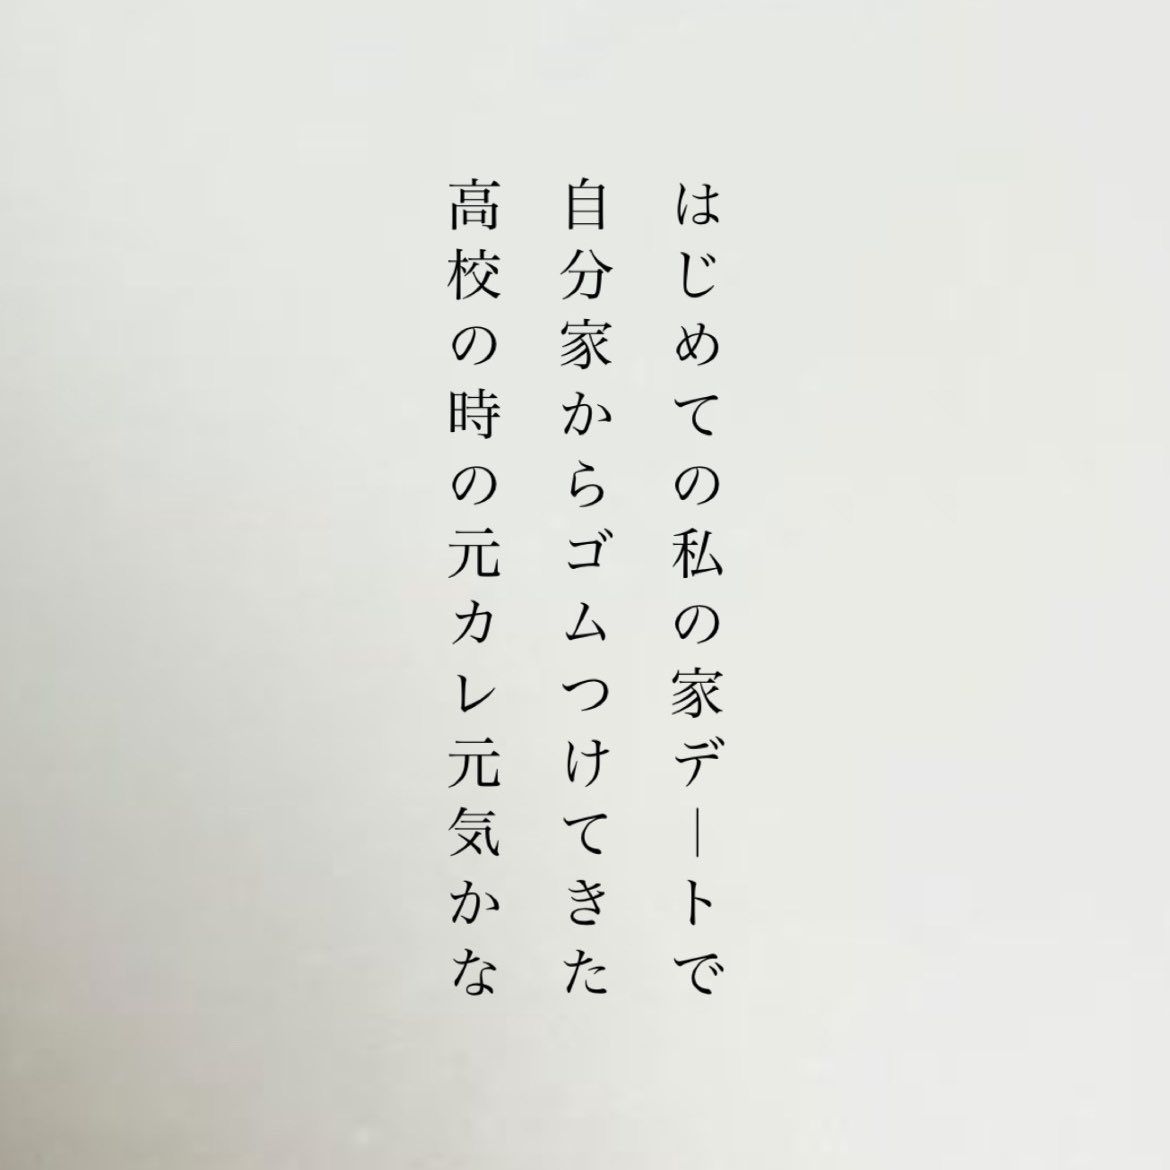 はじめての私の家デートで
自分家からゴムつけてきた
高校の時の元カレ元気かな